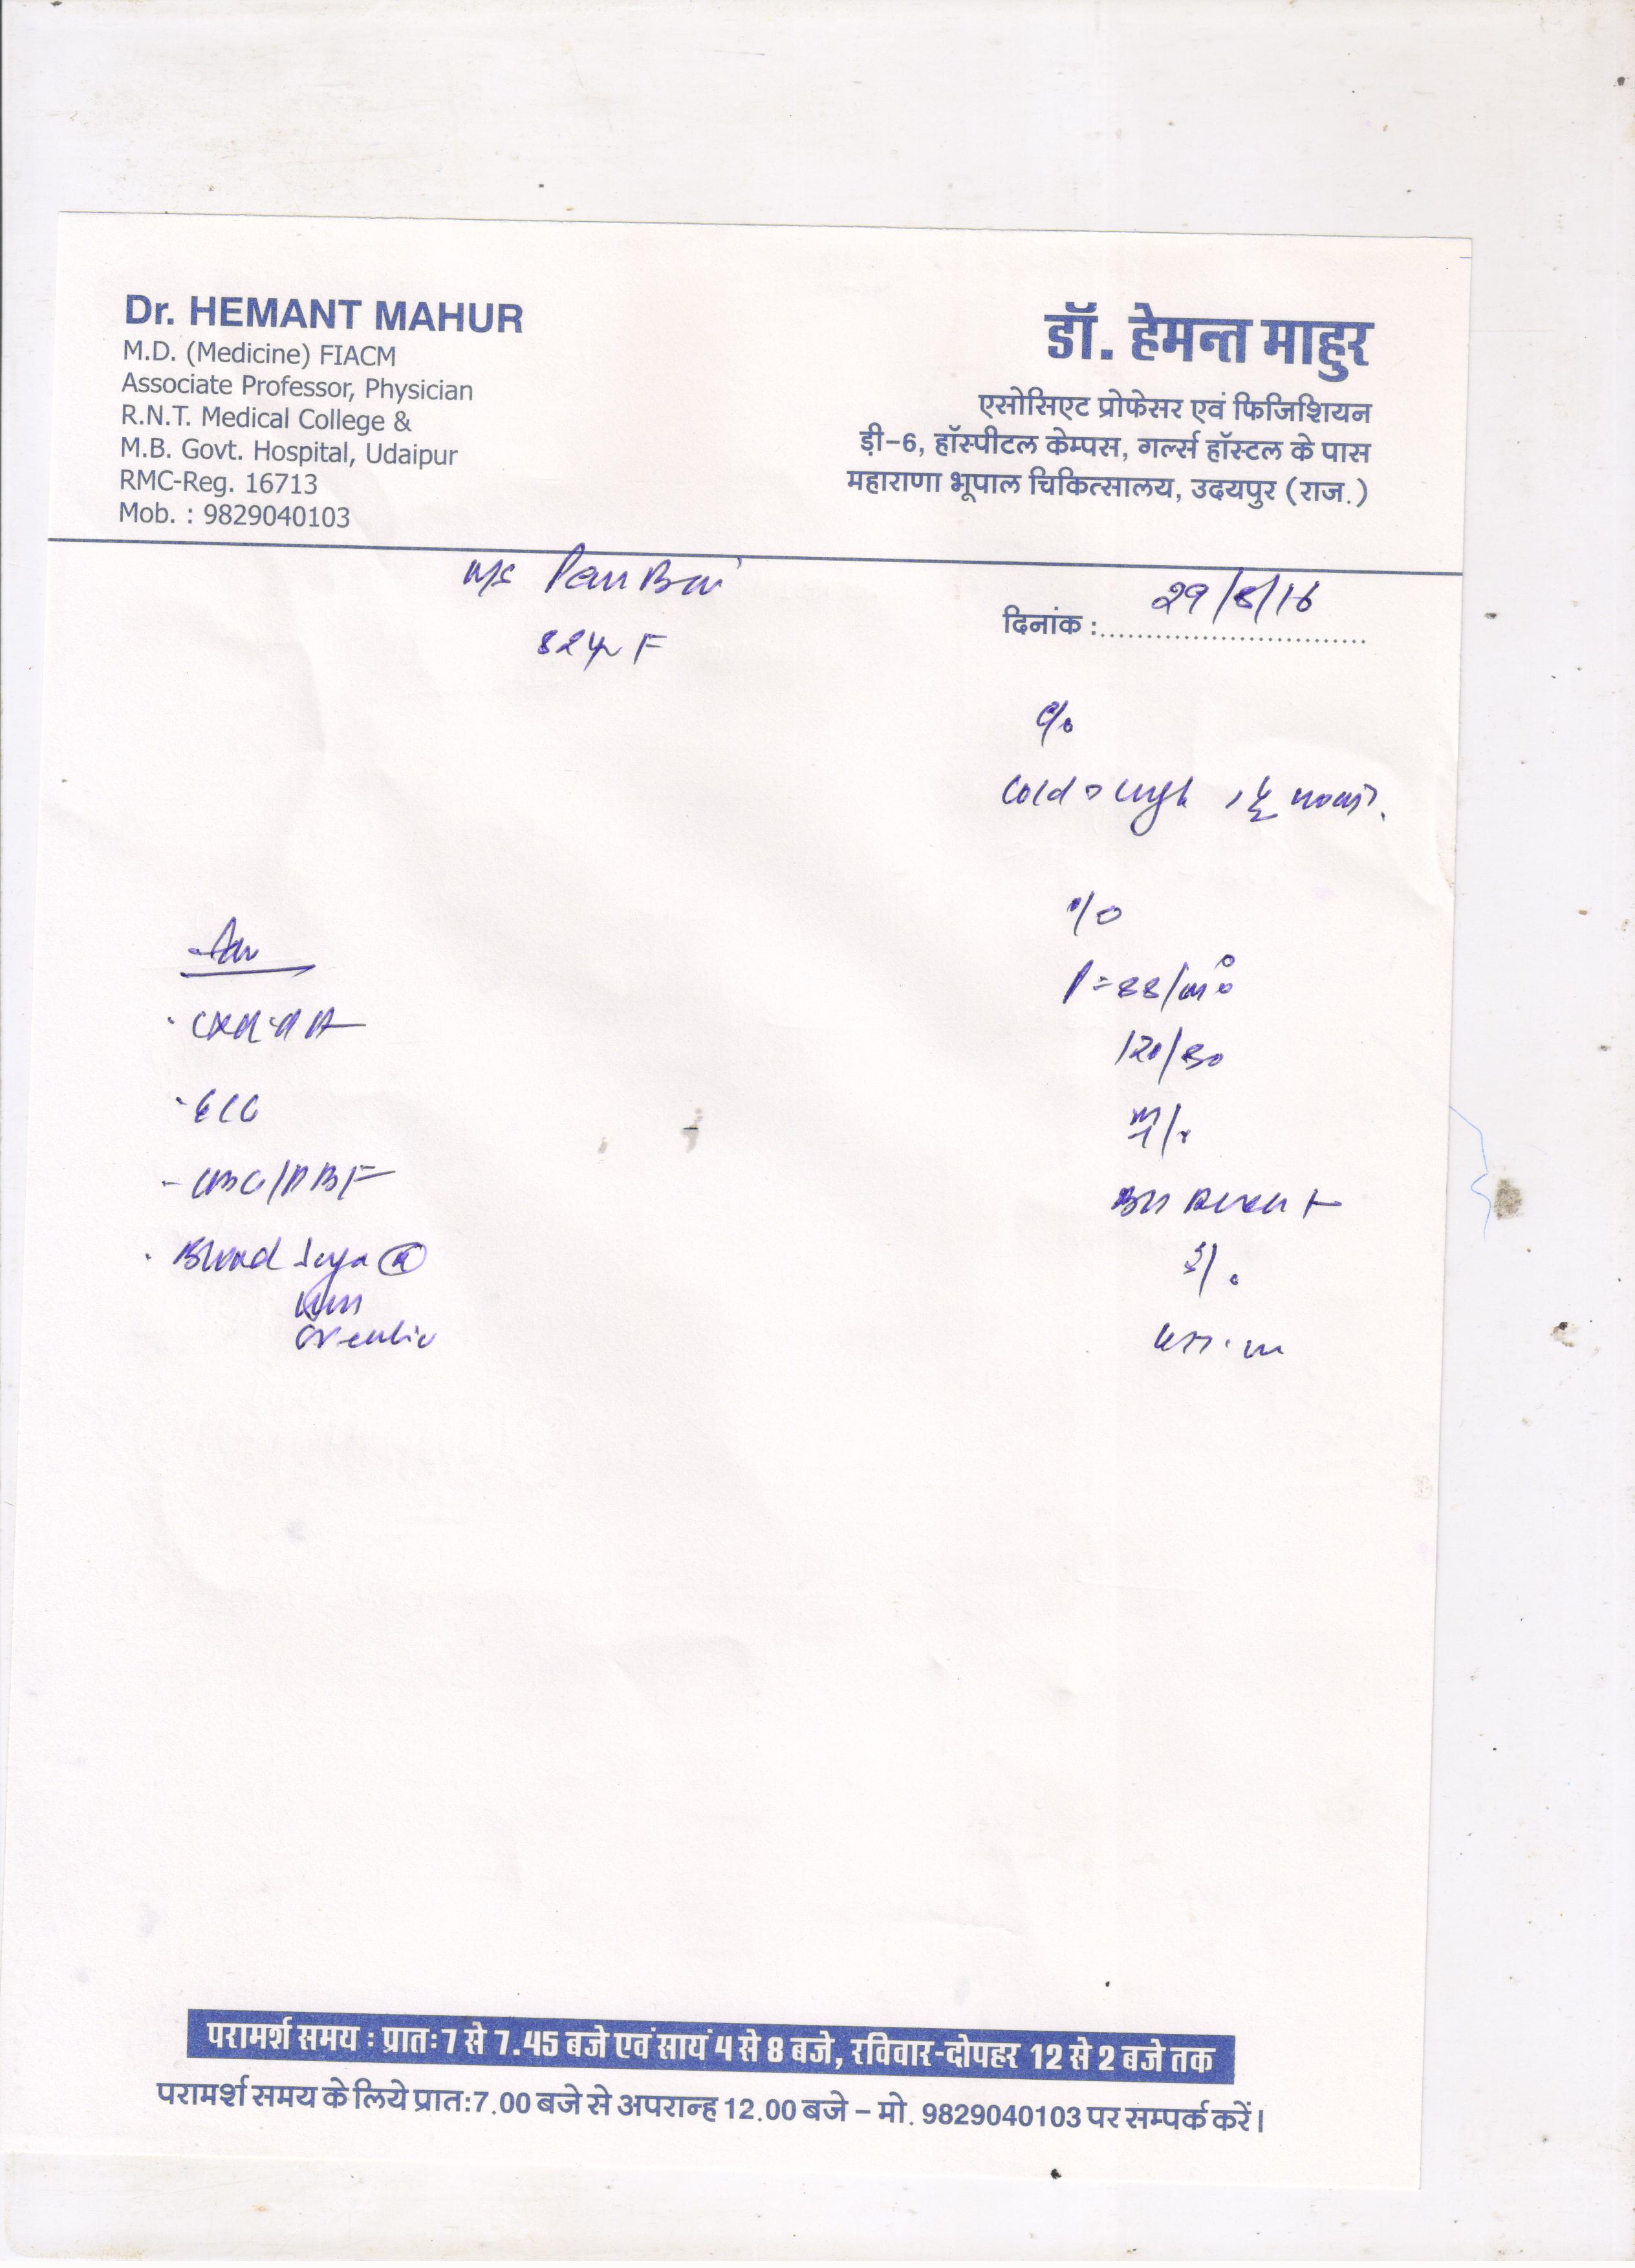 Dr. HEMANT MAHUR
M.D. (Medicine) FIACM
Associate Professor, Physician
R.N.T. Medical College &
M.B. Govt. Hospital, Udaipur
RMC-Reg. 16713
Mob. : 9829040103
डॉ. हेमन्त माहुर
एसोसिएट प्रोफेसर एवं फिजिशियन
ड़ी-6, हॉस्पीटल केम्पस, गर्ल्स हॉस्टल के पास
महाराणा भूपाल चिकित्सालय, उदयपुर (राज.)
Bai
दिनांक : 29/8/16
82yr F
c/o
Cold & cough
o/e
P=88/min
120/80
Adv
- CXR-PA
- ECG
- CBC/PBF
- Blood Sugar (R)
Urea
Creatin
परामर्श समय : प्रातः7 से 7.45 बजे एवं सायं 4 से 8 बजे, रविवार-दोपहर 12 से 2 बजे तक
परामर्श समय के लिये प्रात:7.00 बजे से अपरान्ह 12.00 बजे – मो. 9829040103 पर सम्पर्क करें।